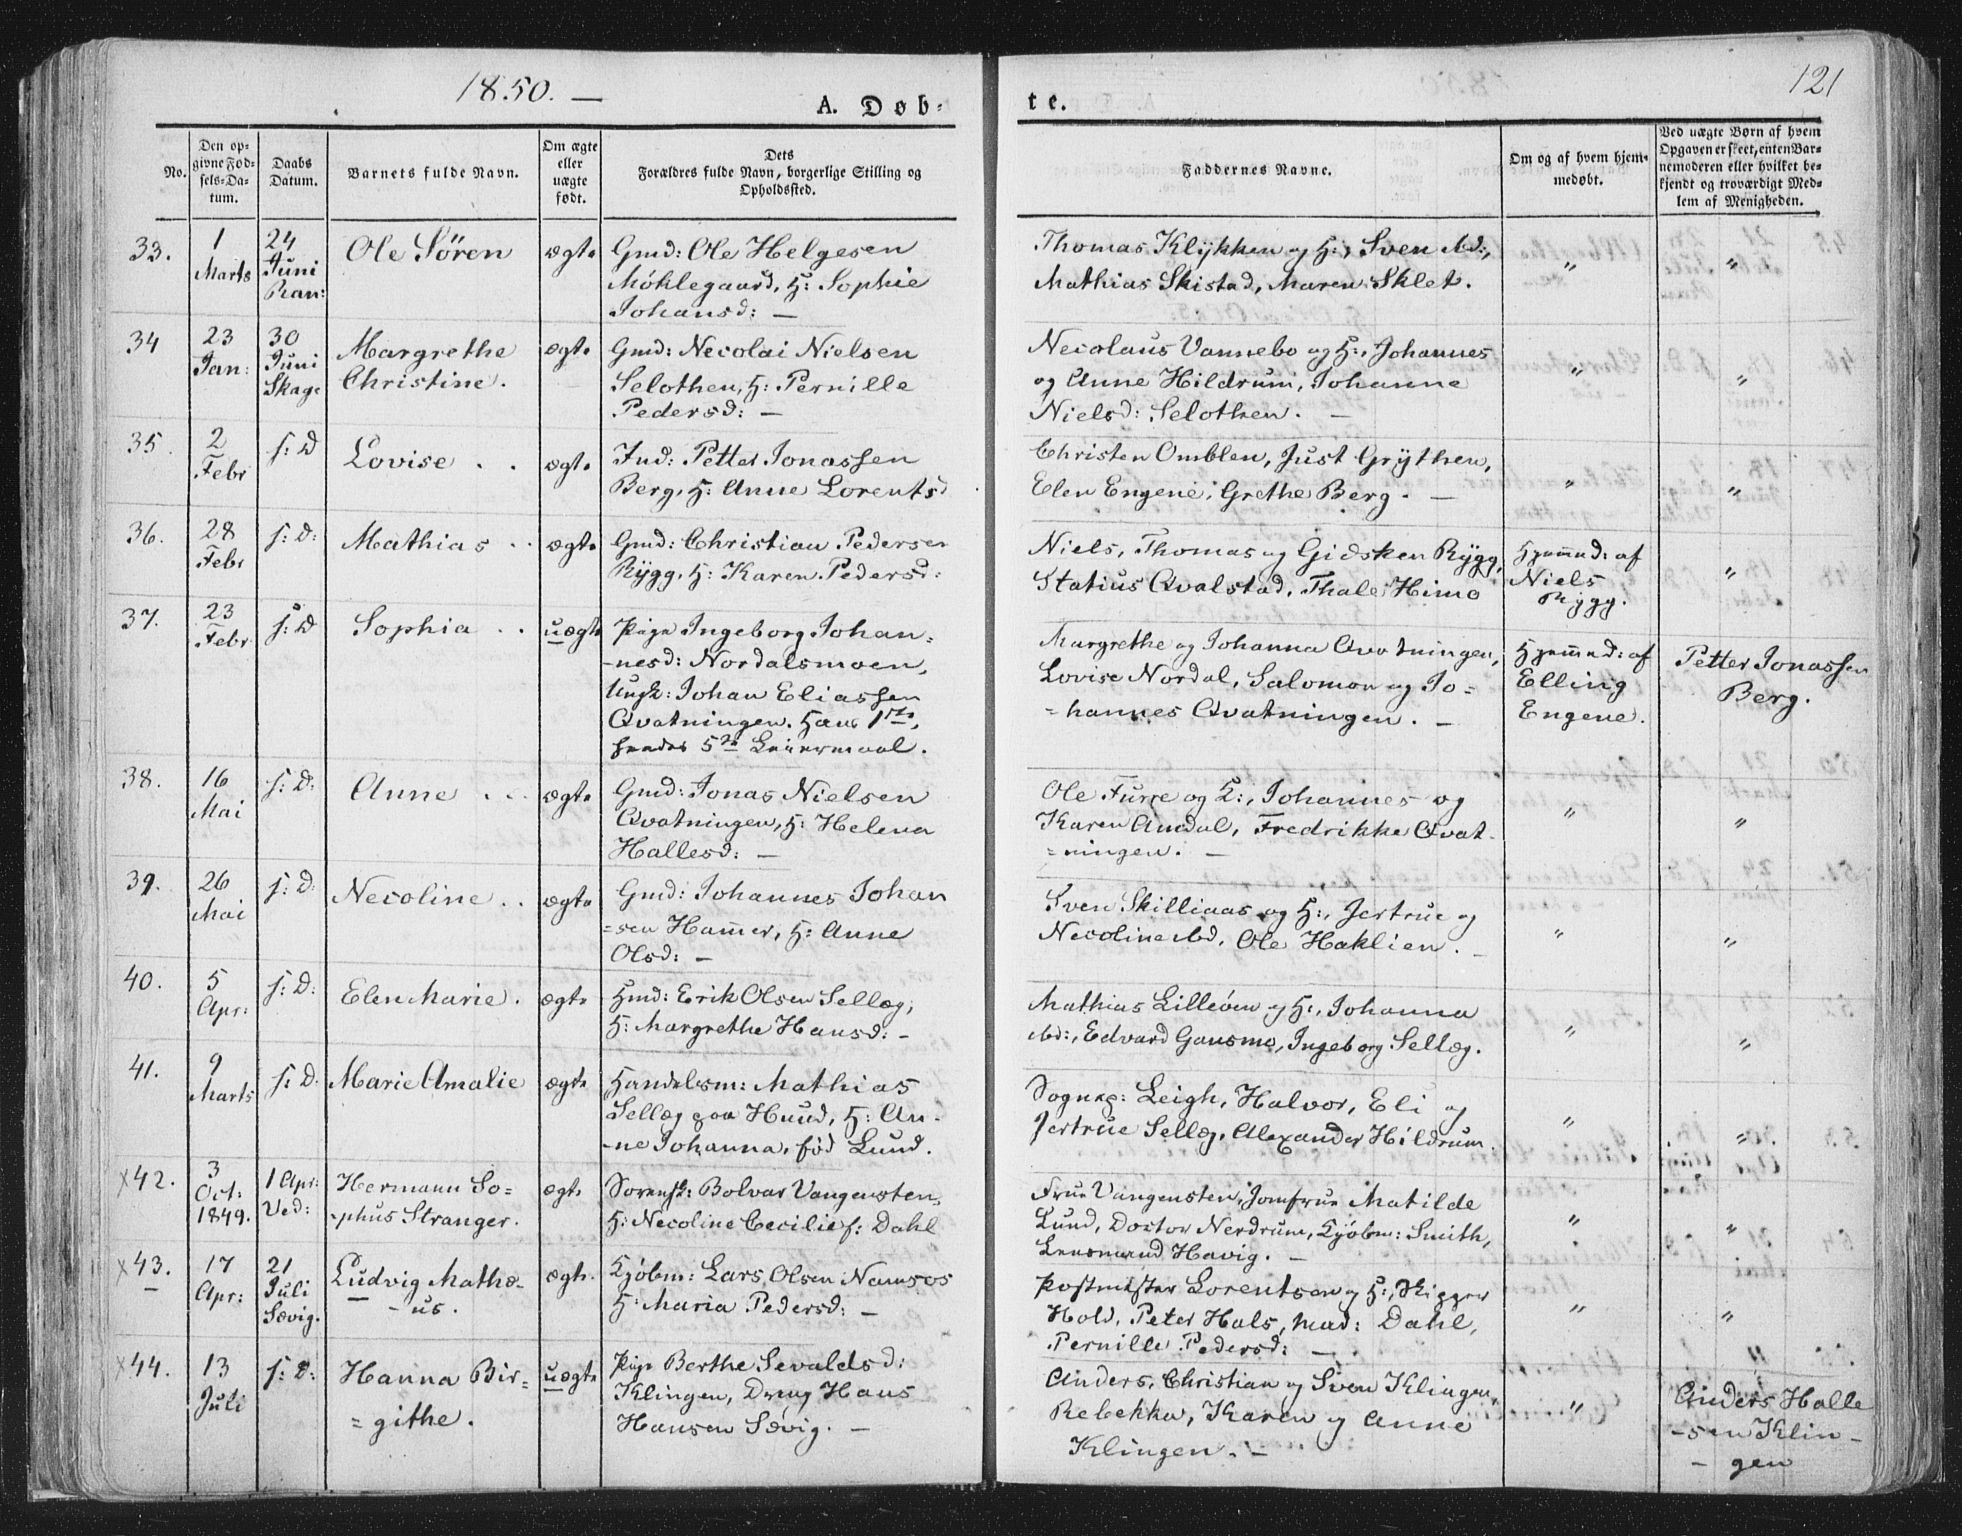 1850. —
121
A. Døb-
te.
No.
Den op-
givne Fød-
sels-Da-
tum.
Daabs
Datum.
Barnets fulde Navn.
Om ægte
eller
uægte
født.
Dets
Forældres fulde Navn, borgerlige Stilling og
Opholdssted.
Faddernes Navne.
Om og af hvem hjem-
medøbt.
Ved uægte Børn af hvem
Opgaven er skeet, enten Bar-
nemoderen eller hvilket be-
kjendt og troværdigt Med-
lem af Menigheden.
33.
1
Marts
24
Juni
Ran:
Ole Sören
ægte
Gmd: Ole Helgesen
Möklegaard, H: Sophie
Johansd: —
Thomas Klykken og H:, Sven ibd:,
Mathias Skistad, Maren Sklet.
"
"
34
23
Jan:
30
Juni
Skage
Margrethe
Christine.
ægte
Gmd: Necolai Nielsen
Selothen, H: Pernille
Pedersd: —
Necolaus Vannebo og H:, Johannes
og Anne Hildrum, Johanne
Nielsd: Selothen. —
"
"
35.
2
Febr
s: D
Lovise . .
ægte
Ind: Petter Jonassen
Berg, H: Anne Lorentsd
Christen Omblen, Just Grythen,
Elen Engene, Grethe Berg. —
"
"
36.
28
Febr
s: D:
Mathias . .
ægte
Gmd: Christian Pedersen
Rygg, H: Karen Pedersd:
Niels, Thomas og Gidsken Rygg,
Statius Qvalstad, Thale Himo
Hjemmed: af
Niels
Rygg.
"
37.
23
Febr
s: D
Sophia . .
uægte
Pige Ingeborg Johan-
-nesd: Nordalsmoen,
Ungk: Johan Eliassen
Qvatningen. Hans 1ste,
hendes 5te Leiermaal.
Margrethe og Johanna Qvatningen,
Lovise Nordal, Salomon og Jo-
-hannes Qvatningen. —
Hjemmed: af
Elling
Engene.
Petter Jonassen
Berg.
38.
16
Mai
s: D:
Anne . . .
ægte
Gmd: Jonas Nielsen
Qvatningen, H: Helena
Hallesd: —
Ole Furre og H:, Johannes og
Karen Amdal, Fredrikke Qvat-
-ningen. —
"
"
39.
26
Mai
s: D:
Necoline . .
ægte
Gmd: Johannes Johan
-sen Hammer, H: Anne
Olsd: —
Sven Skilliaas og H:, Jertrue og
Necoline ibd, Ole Haklien. —
"
"
40.
5
Apr:
s: D:
Elen Marie .
ægte
Hmd: Erik Olsen Sellæg,
H: Margrethe Hansd: —
Mathias Lilleöen og H:, Johanna
ibd:, Edvard Gansmo, Ingeborg Sellæg.
"
"
41.
9
Marts
s: D.
Marie Amalie
ægte
Handelsm: Mathias
Sellæg paa Hund, H: An-
-ne Johanna, fød Lund.
Sognep: Leigh, Halvor, Eli og
Jertrue Sellæg, Alexander Hildrum.
"
"
×42.
3
Oct:
1849.
1 Apr:
Ved:
Hermann So-
-phus Stranger.
ægte
Sorensk: Bolvar Vangensten,
H: Necoline Cecilie f: Dahl
Frue Vangensten, Jomfrue Matilde
Lund, Doctor Nerdrum, Kjöbm: Smith,
Lensmand Havig. —
"
"
×43.
17
Apr:
21
Juli
Sævig.
Ludvig Mathæ-
-us.
ægte
Kjöbm: Lars Olsen Namsos
H: Maria Pedersd: —
Postmester Lorentsen og H:, Skipper
Hold, Peter Hals, Mad: Dahl,
Pernille Pedersd: —
"
"
×44.
13
Juli
s: D:
Hanna Bir-
-githe.
uægte
Pige Berthe Sevaldsd:
Klingen, Dreng Hans
Hansen Sævig. —
Anders, Christian og Sven Klingen,
Rebekka, Karen og Anne
Klingen. —
"
Anders Halle
-sen Klin-
-gen